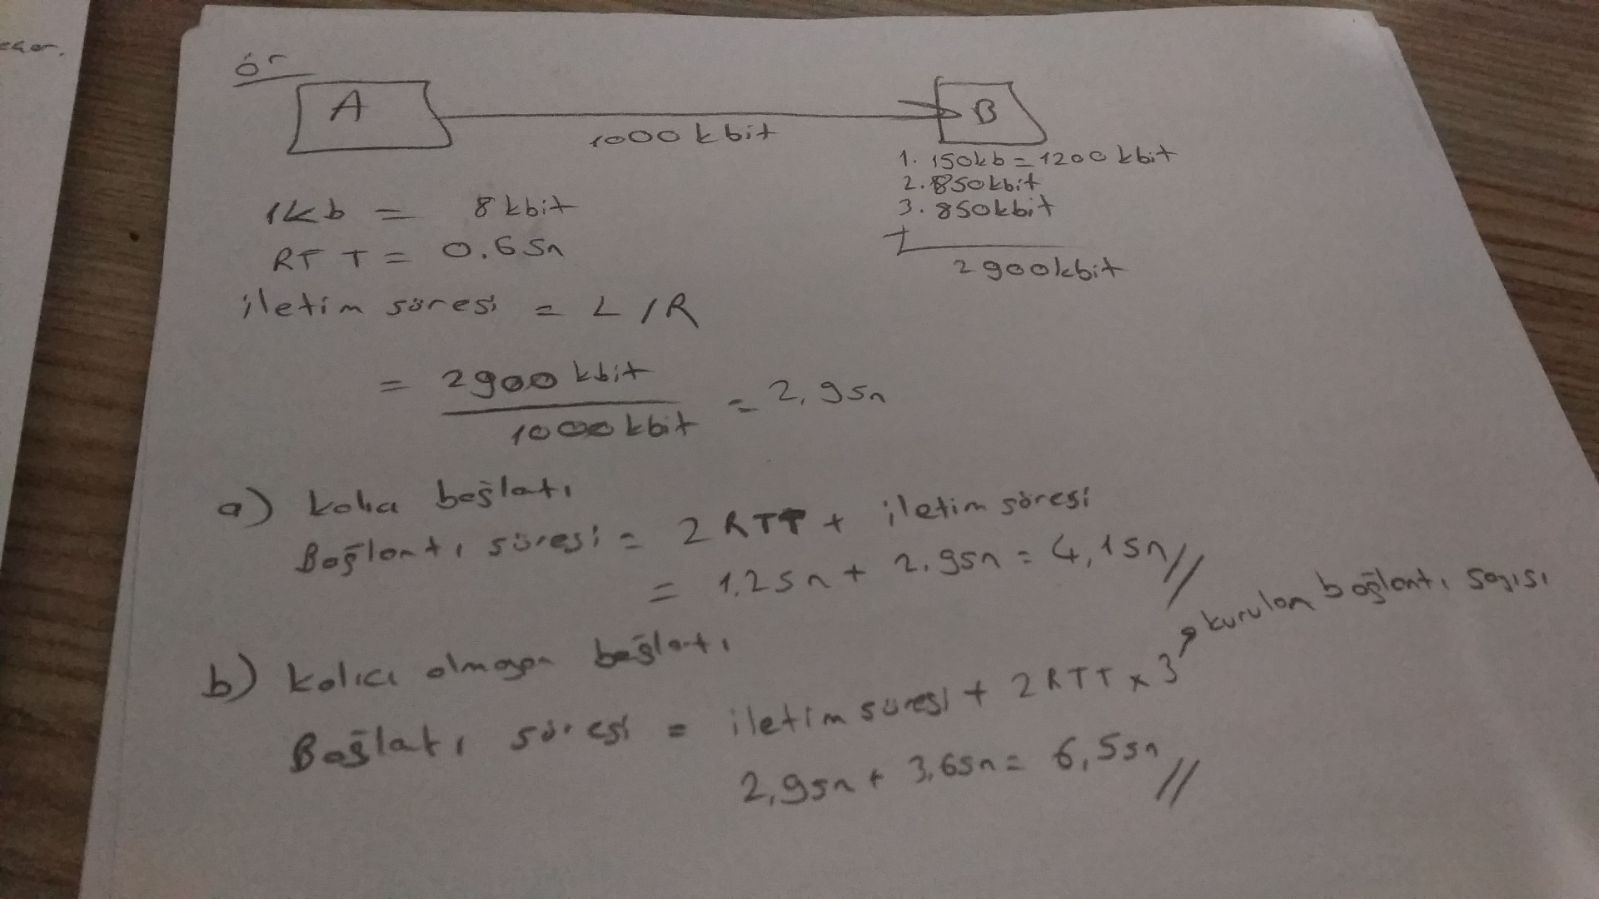 eger.
ör
A
B
1000 kbit
1. 150kb = 1200 kbit
2. 850kbit
3. 850kbit
+
2900kbit
1kb = 8 kbit
RTT = 0.6 sn
iletim süresi = L/R
= 2900 kbit
1000 kbit
= 2,9sn
a) kalıcı bağlatı
Bağlantı süresi = 2 RTT + iletim süresi
= 1.2 sn + 2.9sn = 4,1sn//
b) kalıcı olmayan bağlatı
Bağlatı süresi = iletim süresi + 2 RTT x 3 kurulan bağlantı sayısı
2,9sn + 3,6sn = 6,5sn//